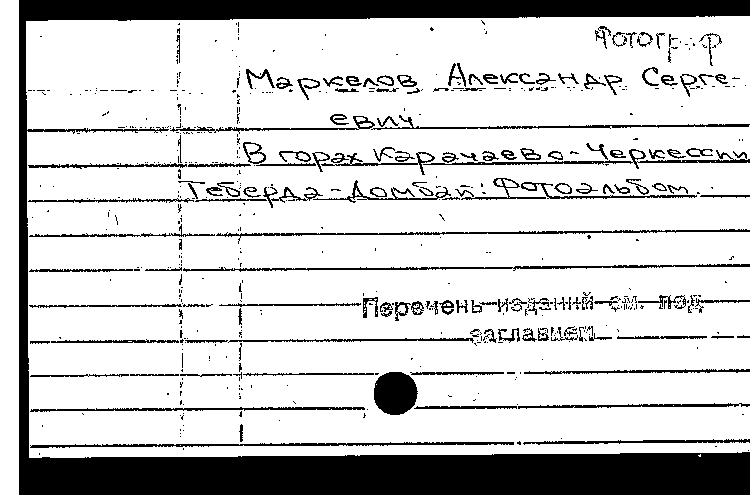 Фотограф
Маркелов Александр Серге-
евич
В горах Карачаево-Черкессии
Теберда-Домбай: Фотоальбом.
Перечень изданий см. под
заглавием